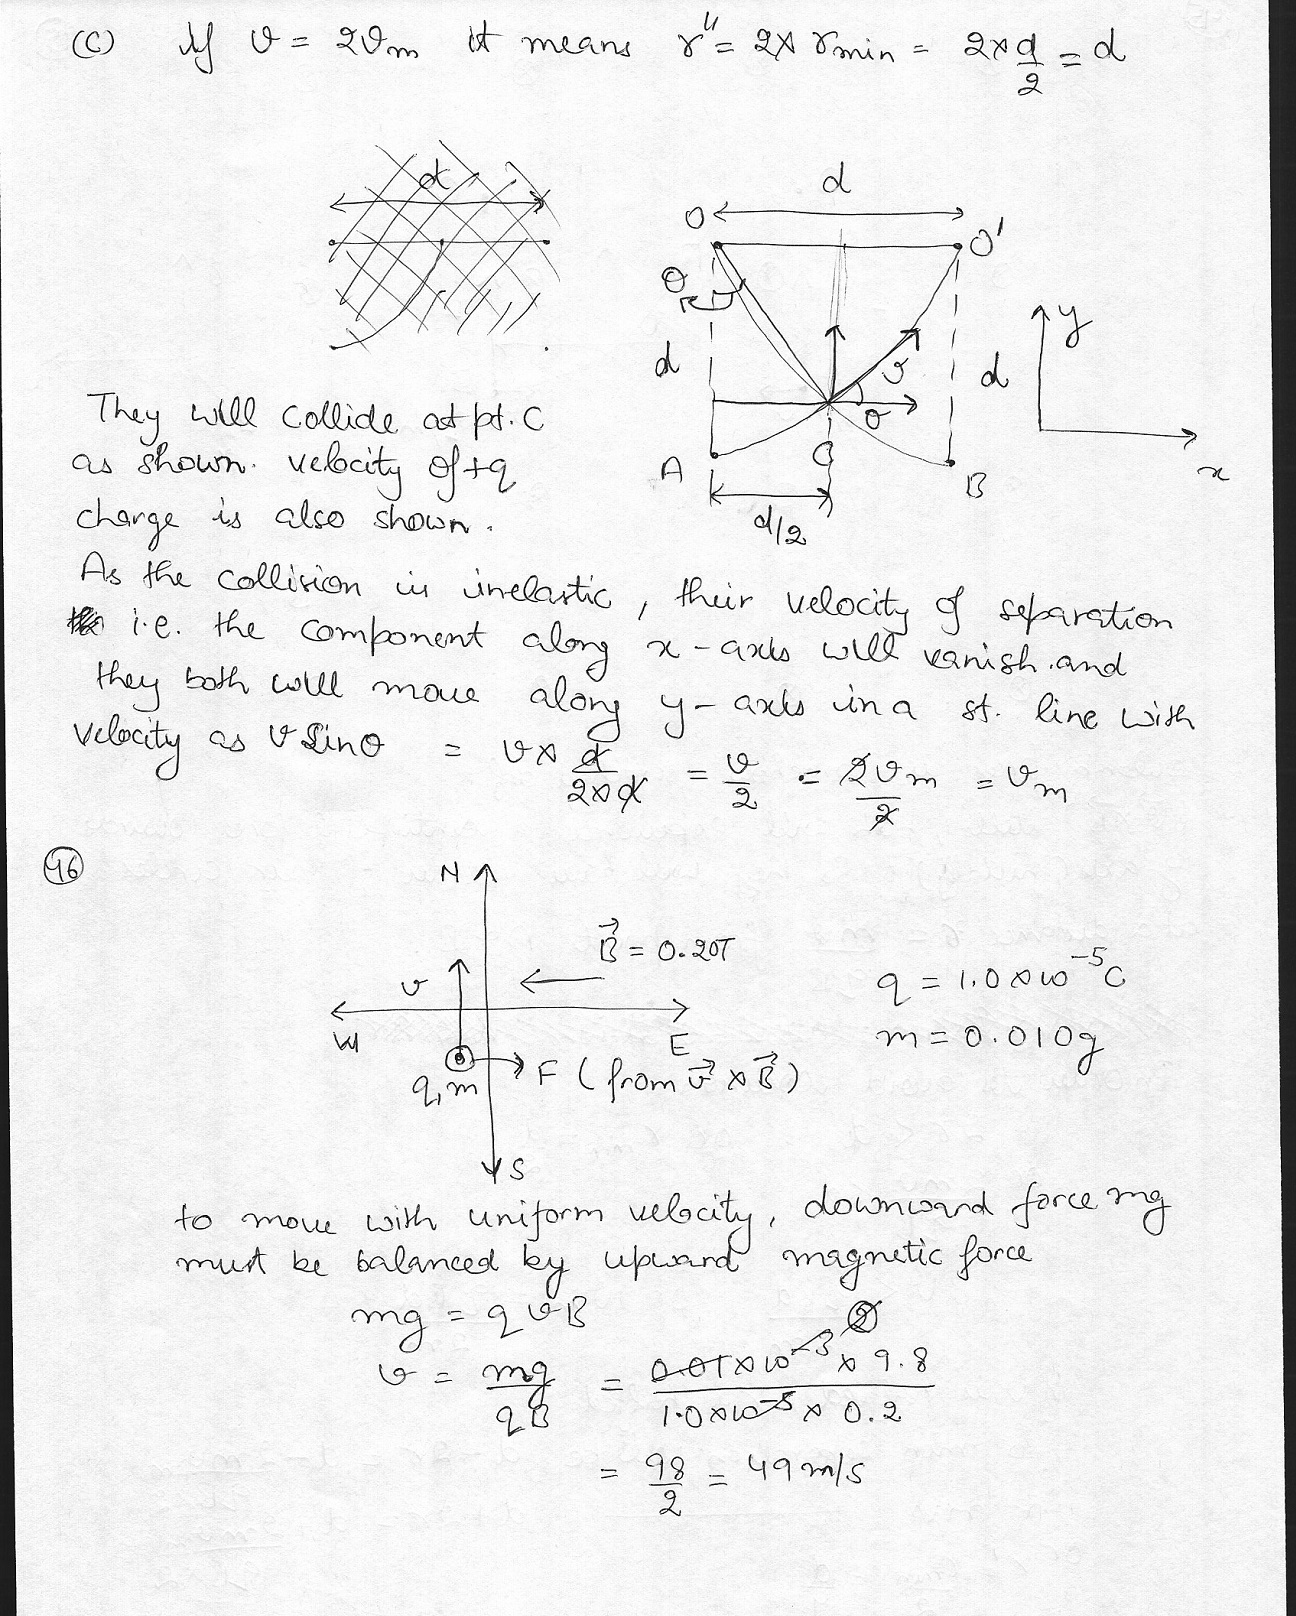 (C) If v = 2vm it means r" = 2 × rmin = 2 × d/2 = d
d
d
O
O'
θ
d
v
d
y
θ
x
A
C
B
d/2
They will collide at pt. C
as shown. velocity of +q
charge is also shown.
As the collision is inelastic, their velocity of separation
i.e. the component along x-axis will vanish. and
they both will move along y-axis in a st. line with
velocity as v sinθ = v × d/2×d = v/2 = 2vm/2 = vm
46
N
B⃗ = 0.20T
v
q = 1.0 × 10⁻⁵ C
W
E
m = 0.010g
q, m
F (from v⃗ × B⃗)
S
to move with uniform velocity, downward force mg
must be balanced by upward magnetic force
mg = qvB
v = mg/qB = 0.01×10⁻³ × 9.8/1.0×10⁻⁵ × 0.2
= 98/2 = 49 m/s